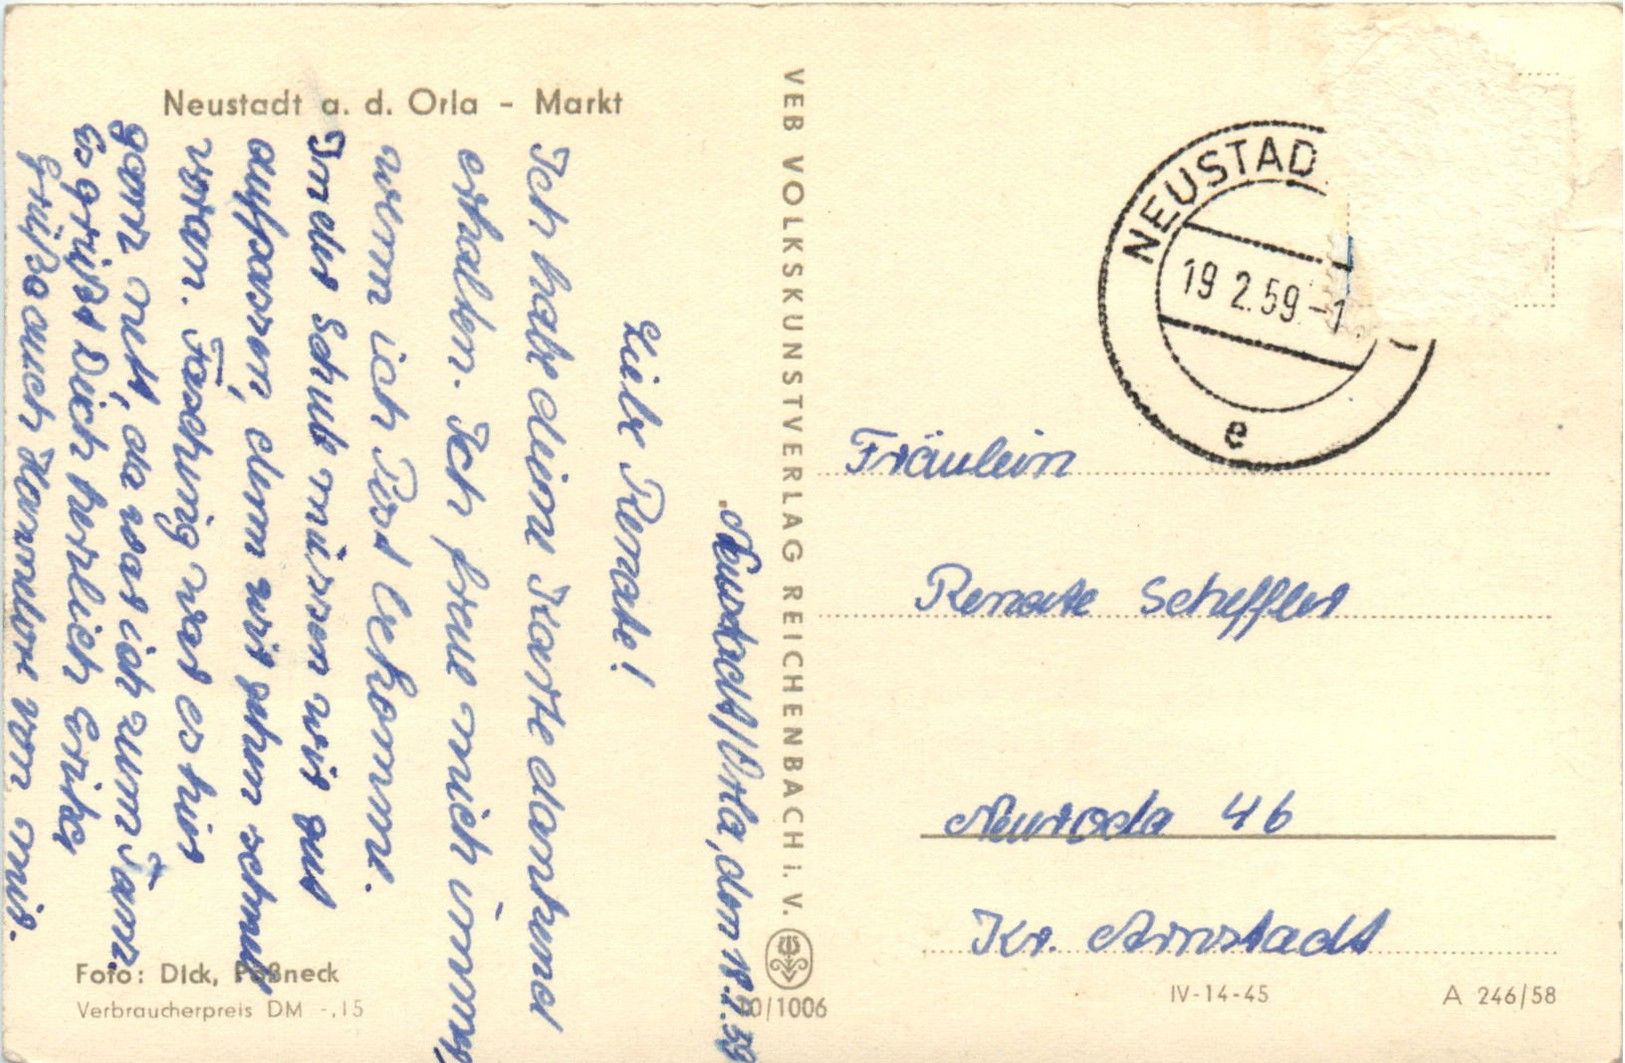 Neustadt a. d. Orla - Markt
Neustadt/Orla, den 18.2.59
Liebe Renate!
Ich habe deine Karte dankend
erhalten. Ich freue mich immer,
wenn ich Post bekomme.
In der Schule müssen wir gut
aufpassen, denn wir gehen schnell
voran. Fasching war es hier
ganz nett, da war ich zum Tanz.
Es grüßt Dich herzlich Erika
Grüße auch Hannelore von mir.
Foto: Dick, Pößneck
Verbraucherpreis DM -,15
VEB VOLKSKUNSTVERLAG REICHENBACH i. V.
10/1006
NEUSTAD
19.2.59.-1
e
Fräulein
Renate Scheffler
Neuroda 46
Kr. Arnstadt
IV-14-45
A 246/58